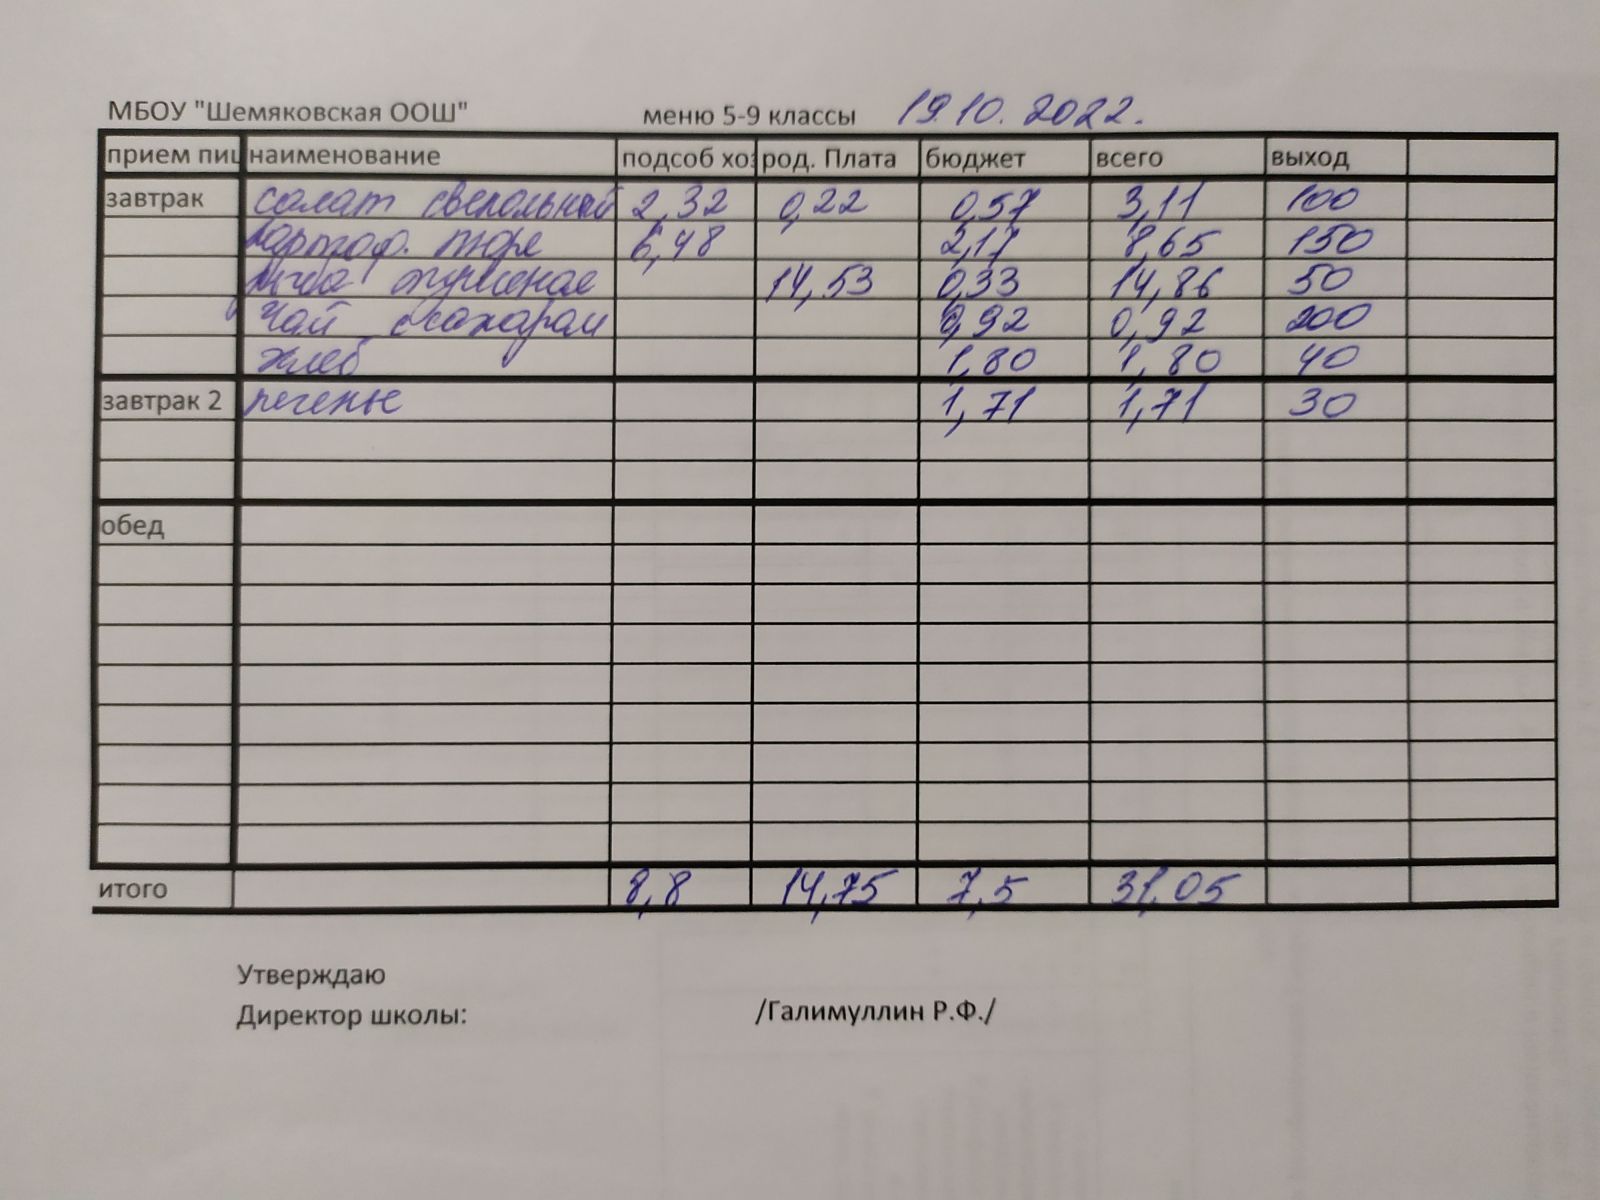 МБОУ "Шемяковская ООШ" меню 5-9 классы 19.10.2022.
прием пиц наименование подсоб хоз род. Плата бюджет всего выход
завтрак салат свекольный 2,32 0,22 0,57 3,11 100
картоф. пюре 6,48 2,17 8,65 150
рыба тушеная 14,53 0,33 14,86 50
чай с сахаром 0,92 0,92 200
хлеб 1,80 1,80 40
завтрак 2 печенье 1,71 1,71 30
обед
итого 8,8 14,75 7,5 31,05
Утверждаю
Директор школы: /Галимуллин Р.Ф./